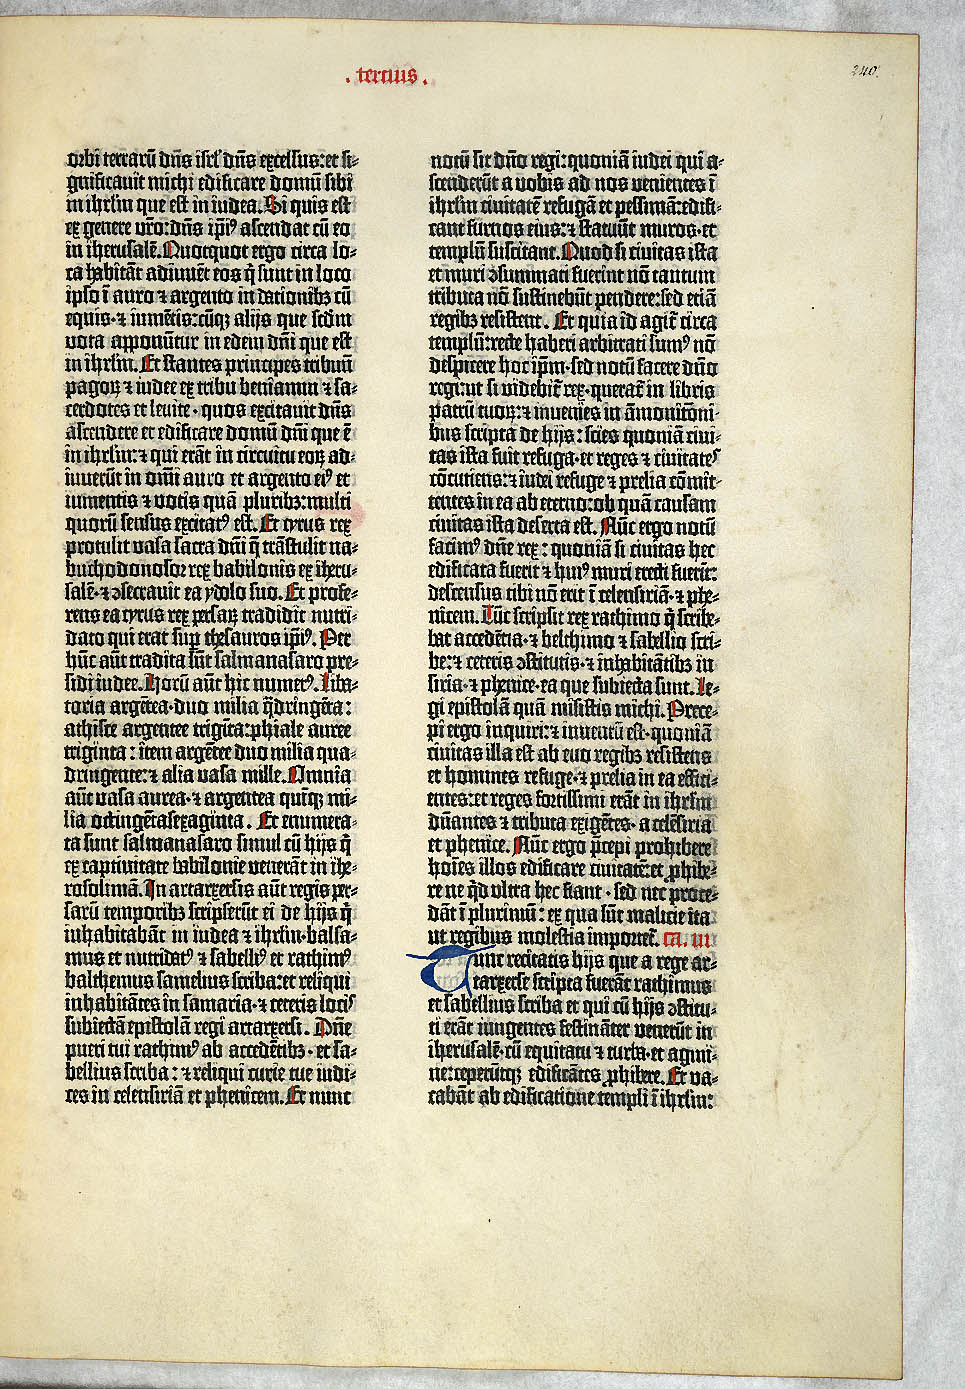 . tercius .
240.
orbi terrarū dn̄s isrl' dn̄s excelsus: et si-
gnificauit michi edificare domū sibi
in ihrl̄m que est in iudea. Si quis est
ex genere vr̄o: dn̄s ip̄i⁹ ascendat cū eo
in iherusalē. Quotquot ergo circa lo-
ca habitāt adiuuēt eos q̄ sunt in loco
ipso ī auro ⁊ argento in dationibꝫ cū
equis· ⁊ iumētis: cūqꝫ alijs que scd̄m
vota apponūtur in edem dn̄i que est
in ihrl̄m. Et stantes principes tribuū
pagoꝝ ⁊ iudee ex tribu beniamin ⁊ sa-
cerdotes et leuite · quos excitauit dn̄s
ascendere et edificare domū dn̄i que ē
in ihrl̄m: ⁊ qui erāt in circuitu eoꝝ ad-
iuuerūt in omī auro et argento ei⁹ et
iumentis ⁊ votis quā pluribꝫ: multi
quorū sensus excitat⁹ est. Et cyrus rex
protulit vasa sacra dn̄i q̄ trāstulit na-
buchodonosor rex babilonis ex iheru-
salē· ⁊ ꝯsecrauit ea ydolo suo. Et profe-
rens ea cyrus rex persaꝝ tradidit mitri-
dato qui erat sup̄ thesauros ip̄i⁹. Per
hūc aūt tradita sūt salmanasaro pre-
sidi iudee. Horū aūt hic numer⁹. Liba-
toria argētea· duo milia q̄dringēta:
athisce argentee trigīta: phiale auree
triginta: item argētee duo milia qua-
dringente: ⁊ alia vasa mille. Omnia
aūt vasa aurea· ⁊ argentea quīqꝫ mi-
lia octingētasexaginta. Et enumera-
ta sunt salmanasaro simul cū hijs q̄
ex captiuitate babilonie venerāt in ihe-
rosolimā. In artarxersis aūt regis per-
sarū temporibꝫ scripserūt ei de hijs q̄
inhabitabāt in iudea ⁊ ihrl̄m· balsa-
mus et mitridat⁹ ⁊ sabelli⁹ et rathim⁹
balthemus samelius scriba: et reliqui
inhabitātes in samaria· ⁊ ceteris locis
subiectā epistolam regi artarxersi. Dn̄e
pueri tui rathim⁹ ab accedētibꝫ· et sa-
bellius scriba: ⁊ reliqui curie tue iudi-
ces in celensiriā et phenicem. Et nunc
notū sit dn̄o regi: quoniā iudei qui a-
scenderūt a vobis ad nos venientes ī
ihrl̄m ciuitatē refugā et pessimā: edifi-
cant furnos eius: ⁊ statuūt muros· et
templū suscitant. Quod si ciuitas ista
et muri ꝯsummati fuerint nō tantum
tributa nō sustinebūt pendere: sed etiā
regibꝫ resistent. Et quia id agit̄ circa
templū: recte haberi arbitrati sum⁹ nō
despicere hoc ip̄m· sed notū facere dn̄o
regi: ut si videbit̄ rex· querat̄ in libris
patrū tuoꝝ: ⁊ inuenies in āmonitōni-
bus scripta de hijs: scies quoniā ciui-
tas ista fuit refuga· et reges ⁊ ciuitates
cōcutiens: ⁊ iudei refuge ⁊ prelia cōmit-
tentes in ea ab eterno: ob quā causam
ciuitas ista deserta est. Nūc ergo notū
facim⁹ dn̄e rex: quoniā si ciuitas hec
edificata fuerit ⁊ hui⁹ muri erecti fuerīt:
descensus tibi nō erit ī celensiriā· ⁊ phe-
nicem. Tūc scripsit rex rathimo q̄ scribe-
bat accedētia· ⁊ belthimo ⁊ sabellio scri-
be: ⁊ ceteris ꝯstitutis· ⁊ inhabitātibꝫ in
siria· ⁊ phenice· ea que subiecta sunt. Le-
gi epistolā quā misistis michi. Prece-
pi ergo inquiri: ⁊ inuentū est· quoniā
ciuitas illa est ab euo regibꝫ resistens
et homines refuge· ⁊ prelia in ea effici-
entes: et reges fortissimi erāt in ihrl̄m
dn̄antes ⁊ tributa exigētes· a celēsiria
et phenice. Nūc ergo p̄cepi prohibere
hoīes illos edificare ciuitatē: et ꝓhibe-
re ne q̄d vltra hec fiant · sed nec proce-
dāt ī plurimū: ex qua sūt malicie ita
ut regibus molestia importet̄. ca. iii
Tunc recitatis hijs que a rege ar-
tarxerse scripta fuerāt rathimus
et sabellius scriba et qui cū hijs ꝯstitu-
ti erāt iungentes festināter venerūt in
iherusalē· cū equitatu ⁊ turba· et agmi-
ne: ceperūtqꝫ edificātes ꝓhibere. Et va-
cabāt ab edificatione templi ī ihrl̄m: